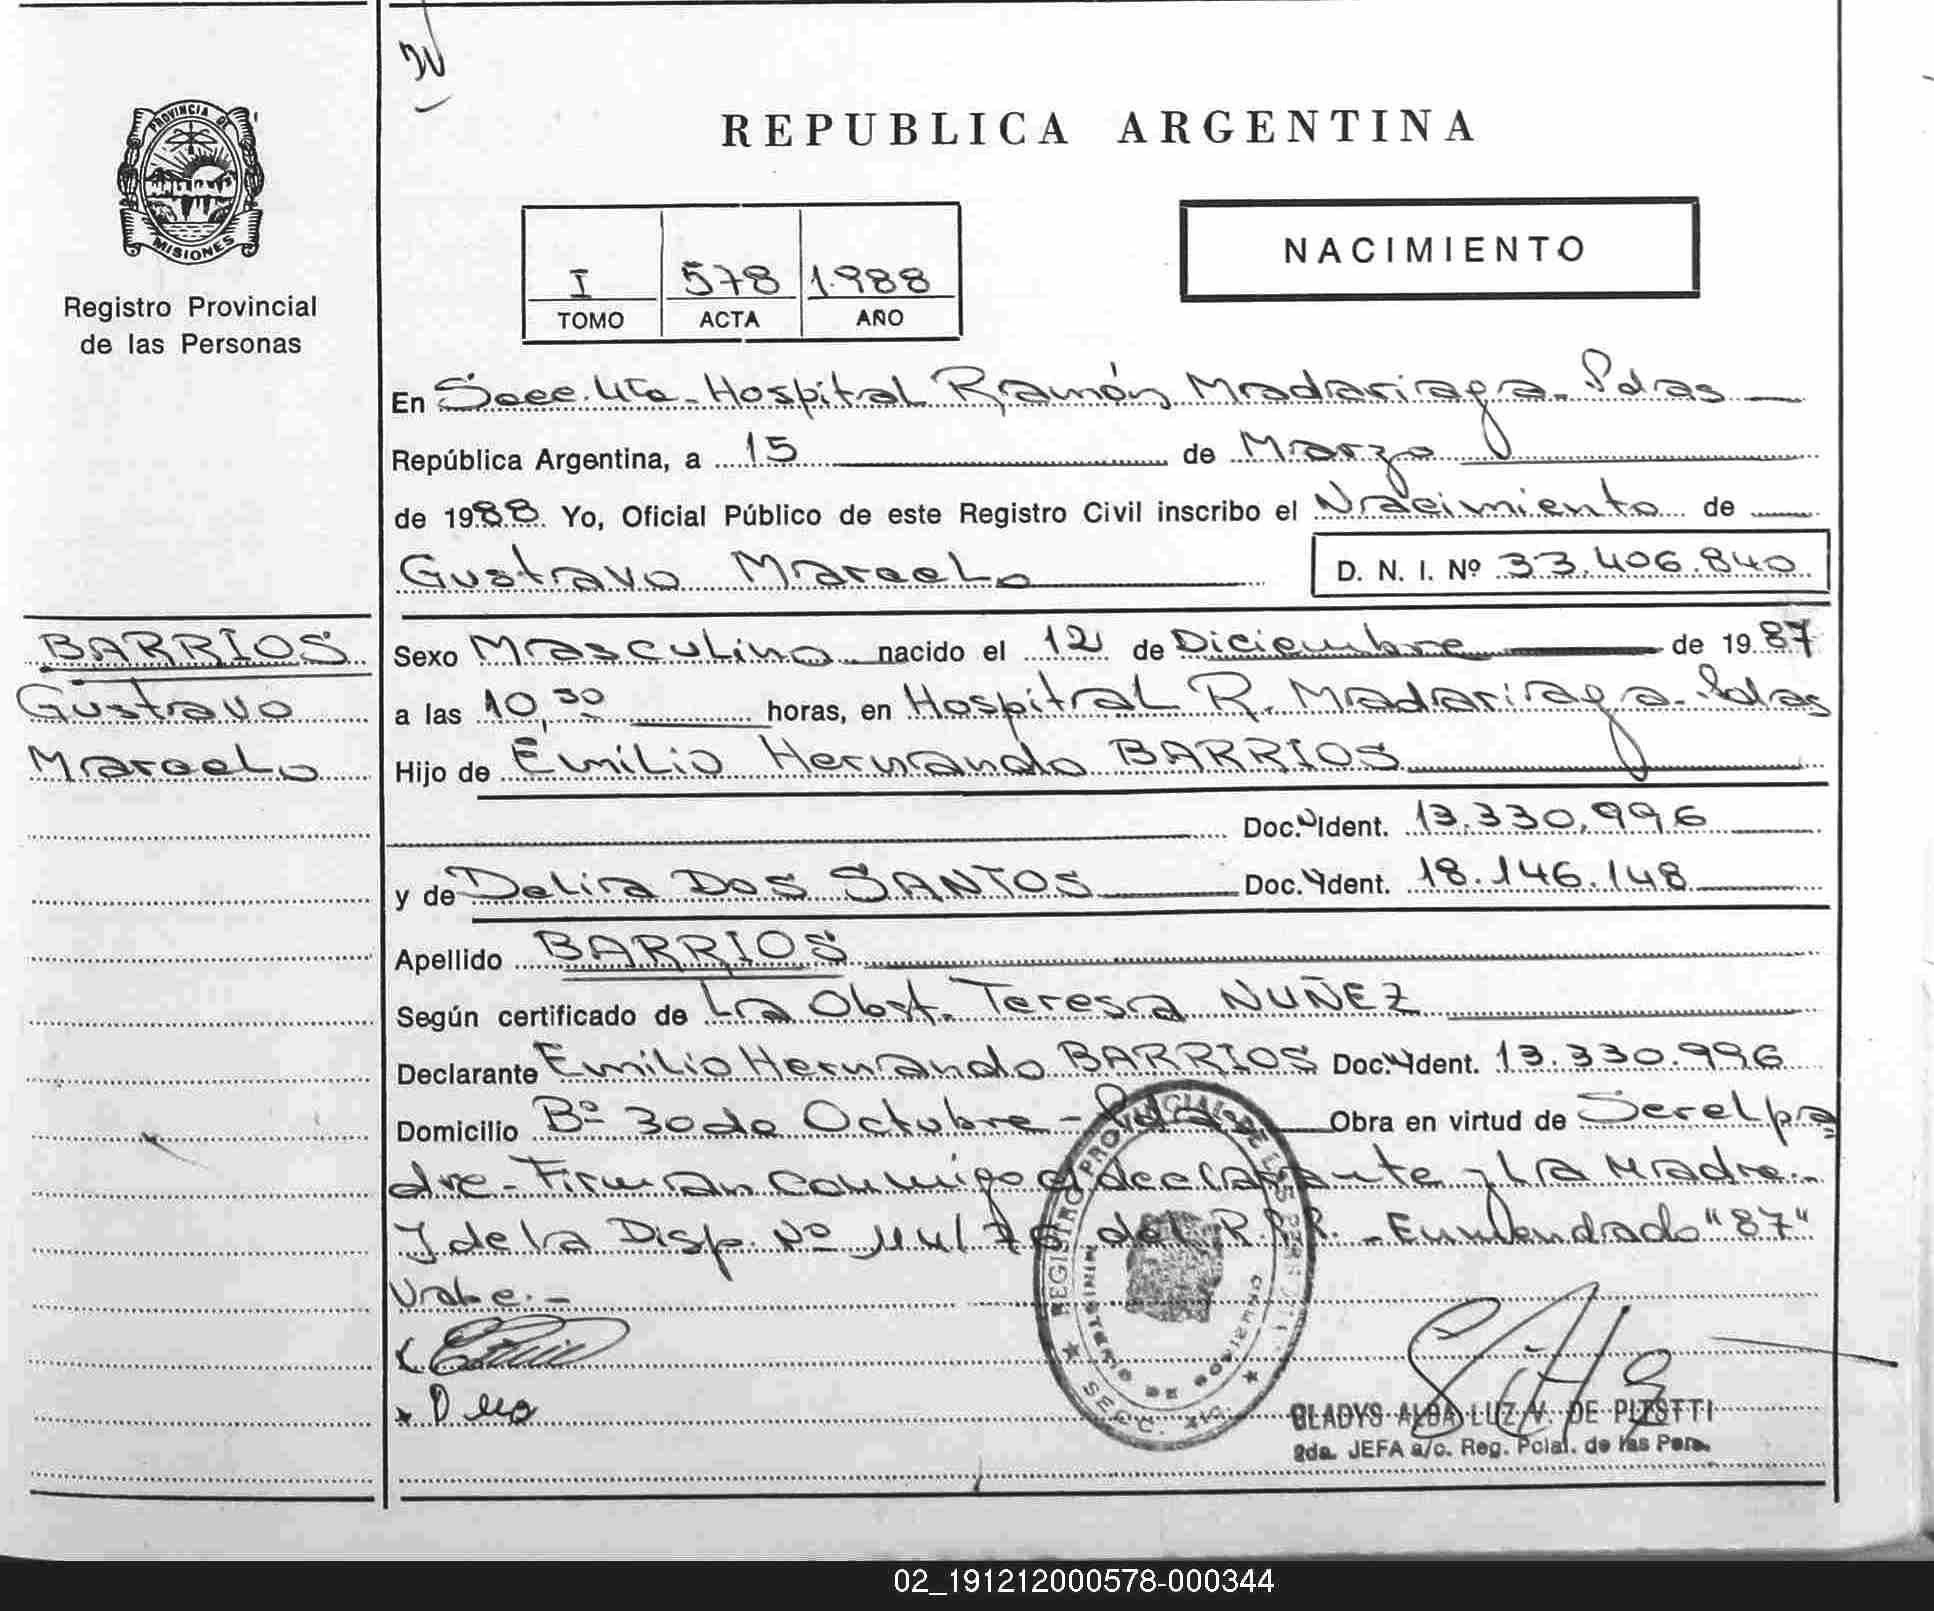 PROVINCIA DE
MISIONES
Registro Provincial
de las Personas
REPUBLICA ARGENTINA
NACIMIENTO
I 578 1.988
TOMO ACTA AÑO
En Secc. 4ta. Hospital Ramón Madariaga. Pdas
República Argentina, a 15 de Marzo
de 1988 Yo, Oficial Público de este Registro Civil inscribo el Nacimiento de
Gustavo Marcelo D. N. I. Nº 33.406.840
BARRIOS
Gustavo
Marcelo
Sexo Masculino nacido el 12 de Diciembre de 1987
a las 10,30 horas, en Hospital R. Madariaga. Pdas
Hijo de Emilio Hernando BARRIOS
Doc. Ident. 13.330.996
y de Delia DOS SANTOS Doc. Ydent. 18.146.148
Apellido BARRIOS
Según certificado de La Obst. Teresa NUÑEZ
Declarante Emilio Hernando BARRIOS Doc. Ydent. 13.330.996
Domicilio Bº 30 de Octubre - Pdas Obra en virtud de Ser el pa
dre - Firman conmigo el declarante y La Madre.-
Y de la Disp. Nº 114/76 del R.P.P. - Enmendado "87"
Vale.-
REGISTRO PROVINCIAL DE LAS PERSONAS
MINISTERIO DE GOBIERNO
SECC. 4ta.
GLADYS ALBA LUZ V. DE PIZSTTI
2da. JEFA a/c. Reg. Pcial. de las Pers.
02_191212000578-000344